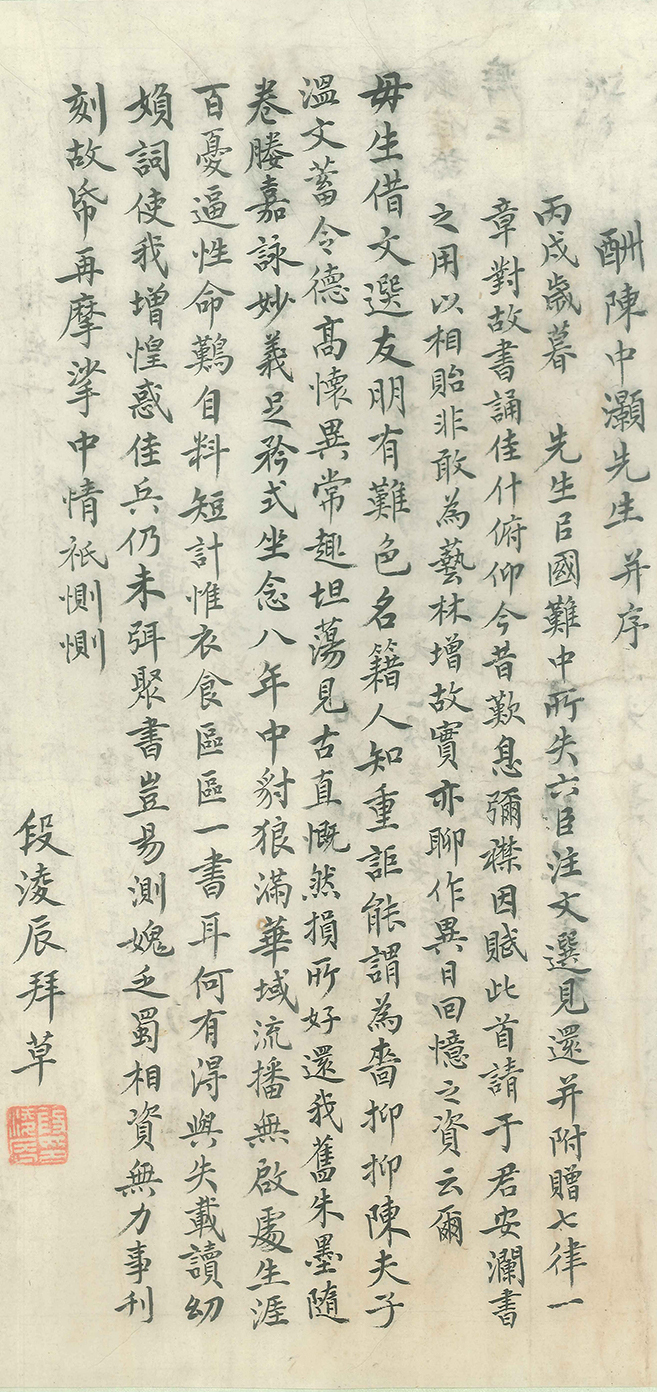 酬陳中灝先生并序
丙戌歲暮　先生㠯國難中所失六臣注文選見還并附贈七律一
章對故書誦佳什俯仰今昔歎息彌襟因賦此首請于君安瀾書
之用以相貽非敢為藝林增故實亦聊作異日回憶之資云爾
毋生借文選友朋有難色名籍人知重詎能謂為嗇抑抑陳夫子
溫文蓄令德高懷異常趣坦蕩見古直慨然損所好還我舊朱墨隨
卷媵嘉詠妙義足矜式坐念八年中豺狼滿華域流播無啟處生涯
百憂逼性命鷬自料短計惟衣食區區一書耳何有得與失載讀幼
嬪詞使我增惶惑佳兵仍未弭聚書豈易測媿乏蜀相資無力事刊
刻故帋再摩挲中情祇惻惻
段淩辰拜草